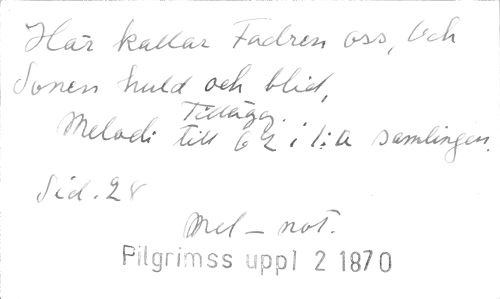 Här kallar Fadren oss, Och
Sonen huld och blid,
Tillägg.
Melodi till 62 i 1:a samlingen.
Sid. 28
Mel-not.
Pilgrimss uppl 2 1870